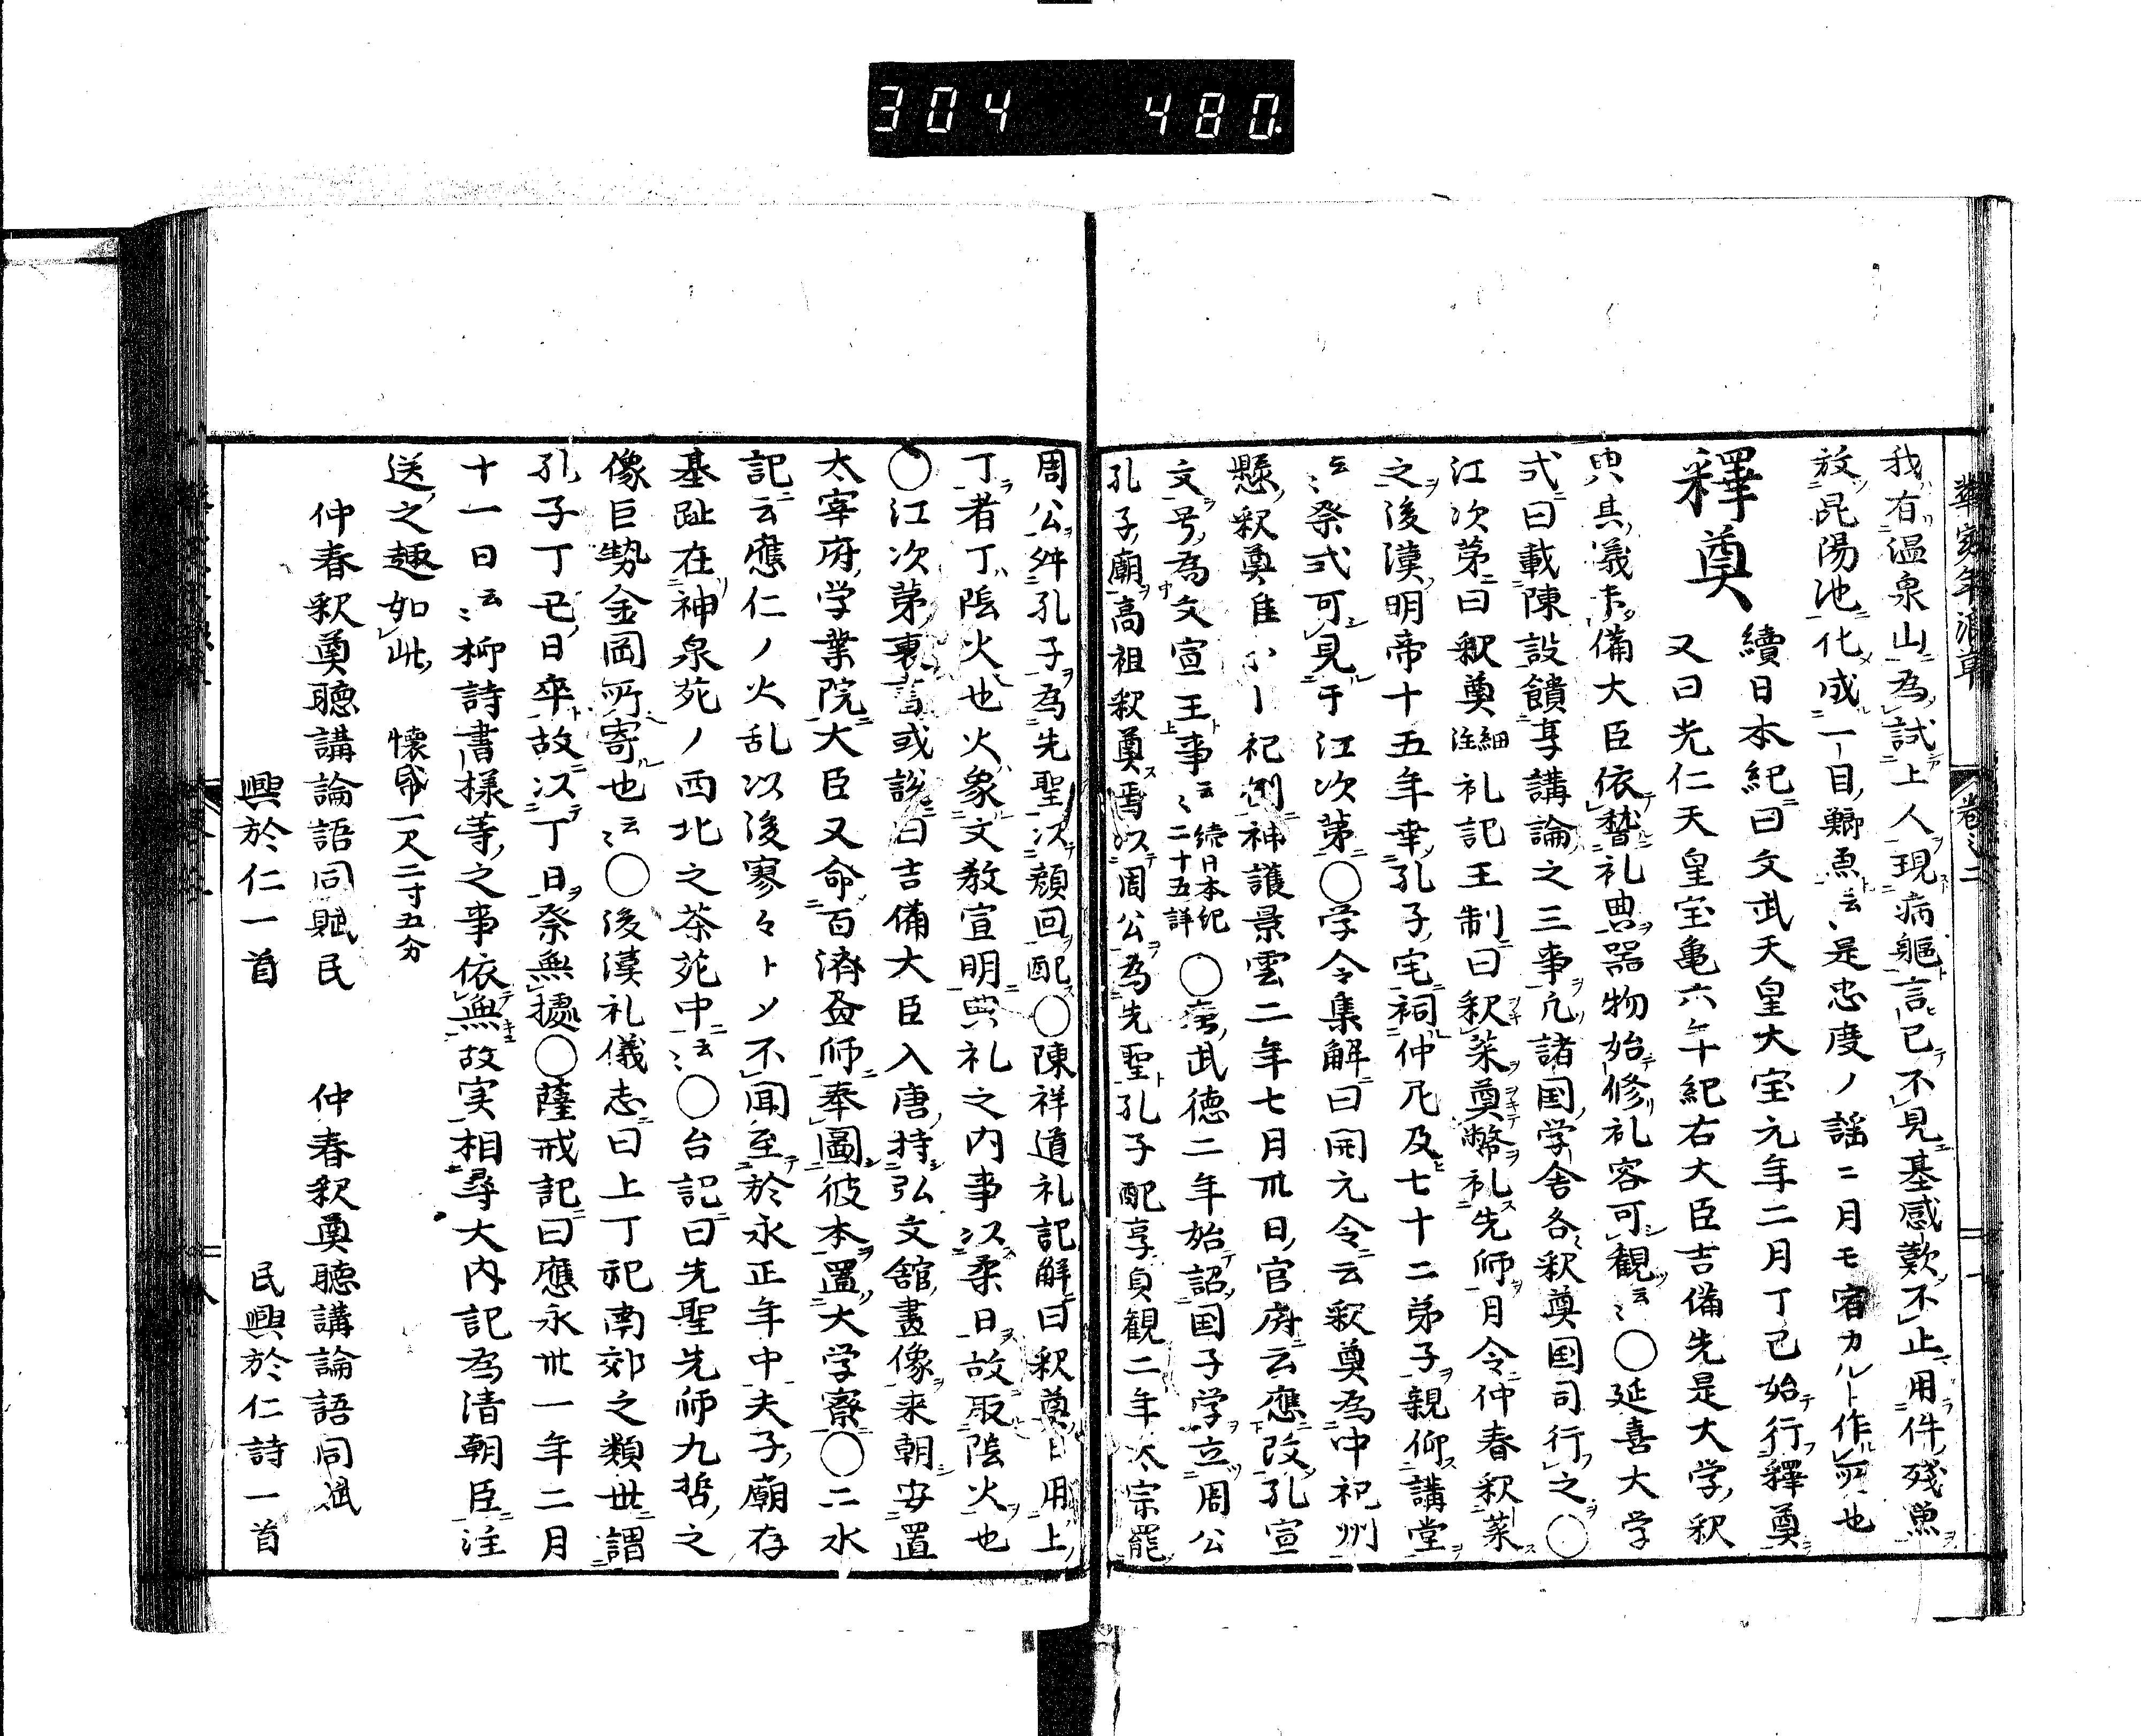 304 480
華実年浪草 卷之二
我有温泉山為試上人現病軀言已不見基感歎不止用件残魚
放昆陽池化成一目鯽魚云、是忠度ノ謡ニ二月モ宿カルト作所也
釋奠
續日本紀曰文武天皇大宝元年二月丁巳始行釋奠
又曰光仁天皇宝亀六年十紀右大臣吉備先是大学釈
典其儀未備大臣依稽礼典器物始修礼容可観云〻○延喜大学
式曰載陳設饋享講論之三事凢諸国学舎各釈奠国司行之○
江次第曰釈奠細注礼記王制曰釈菜奠幣礼先師月令仲春釈菜
之後漢明帝十五年幸孔子宅祠仲尼及七十二弟子親仰講堂
云〻祭式可見于江次第○学令集解曰開元令云釈奠為中祀州
懸釈奠准小ー祀例神護景雲二年七月卅日官府云應改孔宣
文号為文宣王事云〻続日本紀二十五詳○唐武德二年始詔国子学立周公
孔子廟高祖釈奠焉以周公為先聖孔子配享貞観二年太宗罷
周公舛孔子為先聖以顔回配○陳祥道礼記解曰釈奠日用上
丁者丁陰火也火象文教宣明典礼之内事以柔日故取陰火也
○江次第裏書或説曰吉備大臣入唐持弘文館畫像来朝安置
太宰府学業院大臣又命百濟畫師奉圖彼本置大学寮○二水
記云應仁ノ火乱以後寥々トメ不聞至於永正年中夫子廟存
基趾在神泉苑ノ西北之茶苑中云〻○台記曰先聖先師九哲之
像巨勢金岡所寄也云〻○後漢礼儀志曰上丁祀南郊之類世謂
孔子丁巳日卒故以丁日祭無據○薩戒記曰應永卅一年二月
十一日云〻抑詩書様等之事依無故実相尋大内記為清朝臣注
送之趣如此 懐帋一尺二寸五分
仲春釈奠聴講論語同賦民 仲春釈奠聴講論語同賦
興於仁一首 民興於仁詩一首